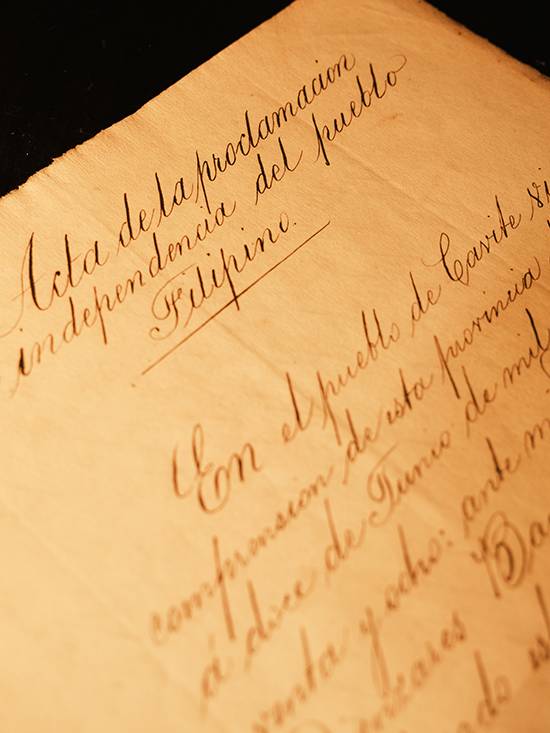 Acta de la proclamacion
independencia del pueblo
Filipino.
En el pueblo de Cavite
comprension de esta provincia
á doce de Junio de mil
y ocho: ante
Ba